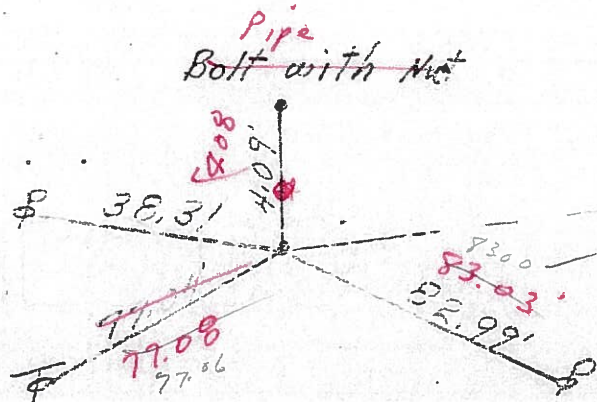 Pipe
Bolt with Nut
4.08
4.09'
38.31
8300
83.03'
82.99'
77.08
77.06